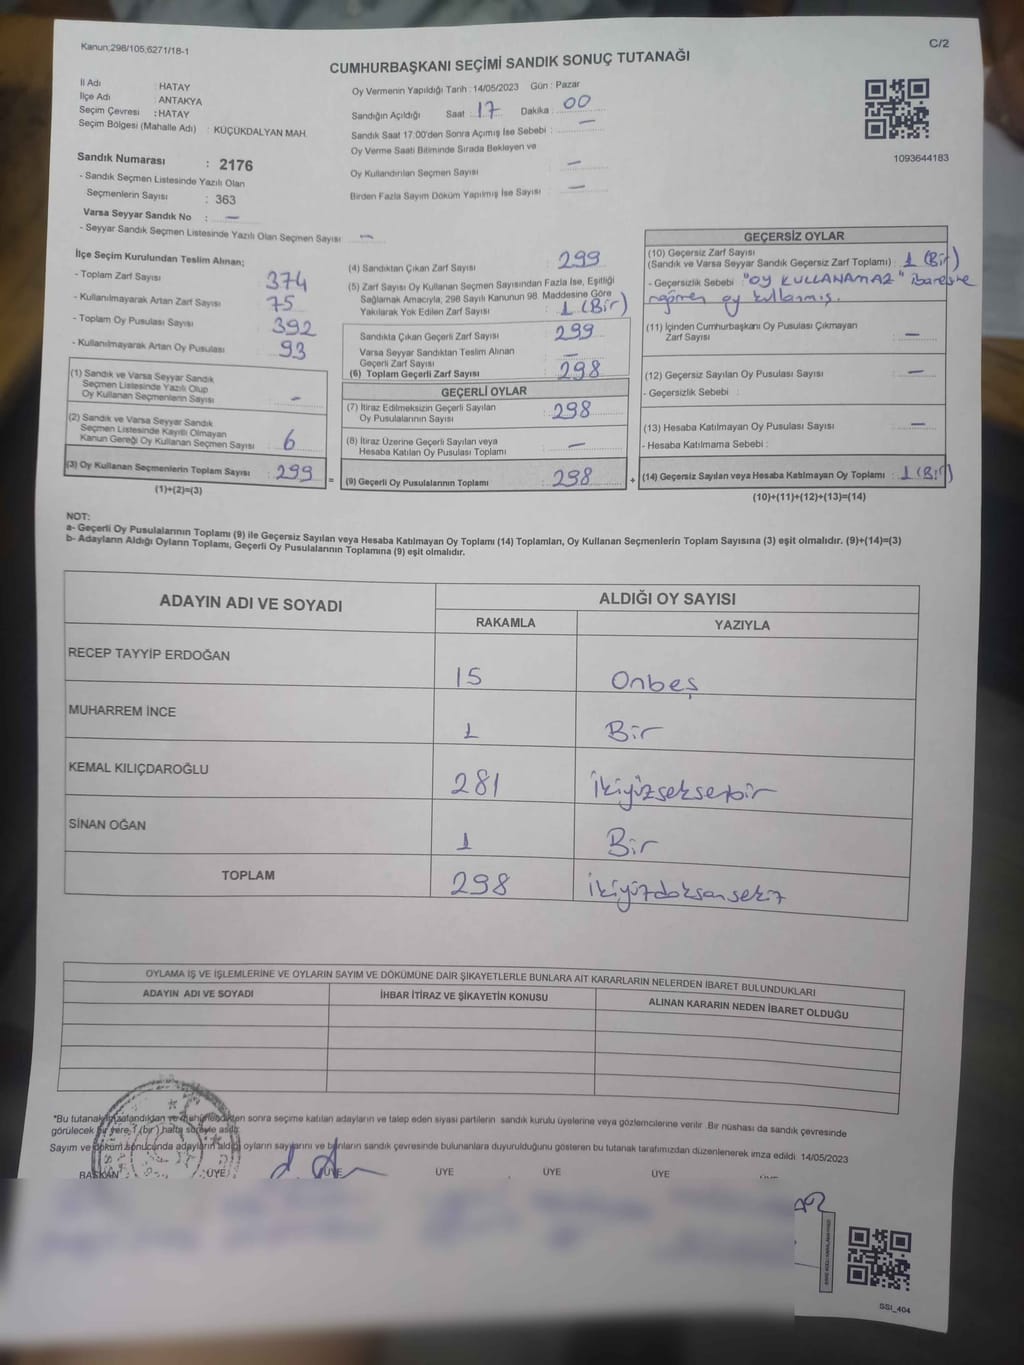 Kanun;298/105,6271/18-1
C/2
CUMHURBAŞKANI SEÇİMİ SANDIK SONUÇ TUTANAĞI
İl Adı : HATAY
İlçe Adı : ANTAKYA
Seçim Çevresi : HATAY
Seçim Bölgesi (Mahalle Adı) : KÜÇÜKDALYAN MAH.
Oy Vermenin Yapıldığı Tarih : 14/05/2023 Gün : Pazar
Sandığın Açıldığı Saat : 17 Dakika : 00
Sandık Saat 17:00'den Sonra Açımış İse Sebebi : —
Oy Verme Saati Bitiminde Sırada Bekleyen ve
Oy Kullandırılan Seçmen Sayısı : —
Birden Fazla Sayım Döküm Yapılmış İse Sayısı : —
1093644183
Sandık Numarası : 2176
- Sandık Seçmen Listesinde Yazılı Olan
Seçmenlerin Sayısı : 363
Varsa Seyyar Sandık No : —
- Seyyar Sandık Seçmen Listesinde Yazılı Olan Seçmen Sayısı : —
İlçe Seçim Kurulundan Teslim Alınan;
- Toplam Zarf Sayısı : 374
- Kullanılmayarak Artan Zarf Sayısı : 75
- Toplam Oy Pusulası Sayısı : 392
- Kullanılmayarak Artan Oy Pusulası : 93
(1) Sandık ve Varsa Seyyar Sandık
Seçmen Listesinde Yazılı Olup
Oy Kullanan Seçmenlerin Sayısı : -
(2) Sandık ve Varsa Seyyar Sandık
Seçmen Listesinde Kayıtlı Olmayan
Kanun Gereği Oy Kullanan Seçmen Sayısı : 6
(3) Oy Kullanan Seçmenlerin Toplam Sayısı : 299
(1)+(2)=(3)
=
(4) Sandıktan Çıkan Zarf Sayısı : 299
(5) Zarf Sayısı Oy Kullanan Seçmen Sayısından Fazla İse, Eşitliği
Sağlamak Amacıyla, 298 Sayılı Kanunun 98. Maddesine Göre
Yakılarak Yok Edilen Zarf Sayısı : 1 (Bir)
Sandıkta Çıkan Geçerli Zarf Sayısı : 299
Varsa Seyyar Sandıktan Teslim Alınan
Geçerli Zarf Sayısı : —
(6) Toplam Geçerli Zarf Sayısı : 298
GEÇERLİ OYLAR
(7) İtiraz Edilmeksizin Geçerli Sayılan
Oy Pusulalarının Sayısı : 298
(8) İtiraz Üzerine Geçerli Sayılan veya
Hesaba Katılan Oy Pusulası Toplamı : —
(9) Geçerli Oy Pusulalarının Toplamı : 298
+
GEÇERSİZ OYLAR
(10) Geçersiz Zarf Sayısı
(Sandık ve Varsa Seyyar Sandık Geçersiz Zarf Toplamı) : 1 (Bir)
- Geçersizlik Sebebi : "OY KULLANAMAZ" ibaresine
rağmen oy kullanmış.
(11) İçinden Cumhurbaşkanı Oy Pusulası Çıkmayan
Zarf Sayısı : —
(12) Geçersiz Sayılan Oy Pusulası Sayısı : —
- Geçersizlik Sebebi :
(13) Hesaba Katılmayan Oy Pusulası Sayısı : —
- Hesaba Katılmama Sebebi :
(14) Geçersiz Sayılan veya Hesaba Katılmayan Oy Toplamı : 1 (Bir)
(10)+(11)+(12)+(13)=(14)
NOT:
a- Geçerli Oy Pusulalarının Toplamı (9) ile Geçersiz Sayılan veya Hesaba Katılmayan Oy Toplamı (14) Toplamları, Oy Kullanan Seçmenlerin Toplam Sayısına (3) eşit olmalıdır. (9)+(14)=(3)
b- Adayların Aldığı Oyların Toplamı, Geçerli Oy Pusulalarının Toplamına (9) eşit olmalıdır.
ADAYIN ADI VE SOYADI
ALDIĞI OY SAYISI
RAKAMLA YAZIYLA
RECEP TAYYİP ERDOĞAN 15 Onbeş
MUHARREM İNCE 1 Bir
KEMAL KILIÇDAROĞLU 281 İkiyüzseksenbir
SİNAN OĞAN 1 Bir
TOPLAM 298 ikiyüzdoksansekiz
OYLAMA İŞ VE İŞLEMLERİNE VE OYLARIN SAYIM VE DÖKÜMÜNE DAİR ŞİKAYETLERLE BUNLARA AİT KARARLARIN NELERDEN İBARET BULUNDUKLARI
ADAYIN ADI VE SOYADI İHBAR İTİRAZ VE ŞİKAYETİN KONUSU ALINAN KARARIN NEDEN İBARET OLDUĞU
*Bu tutanak sonra seçime katılan adayların ve talep eden siyasi partilerin sandık kurulu üyelerine veya gözlemcilerine verilir .Bir nüshası da sandık çevresinde
görülecek bir yere 1 (bir) hafta süreyle asılır.
Sayım ve döküm sonucunda adayların aldığı oyların sayılarını ve bunların sandık çevresinde bulunanlara duyurulduğunu gösteren bu tutanak tarafımızdan düzenlenerek imza edildi. 14/05/2023
BAŞKAN ÜYE ÜYE ÜYE ÜYE ÜYE
SSI_404